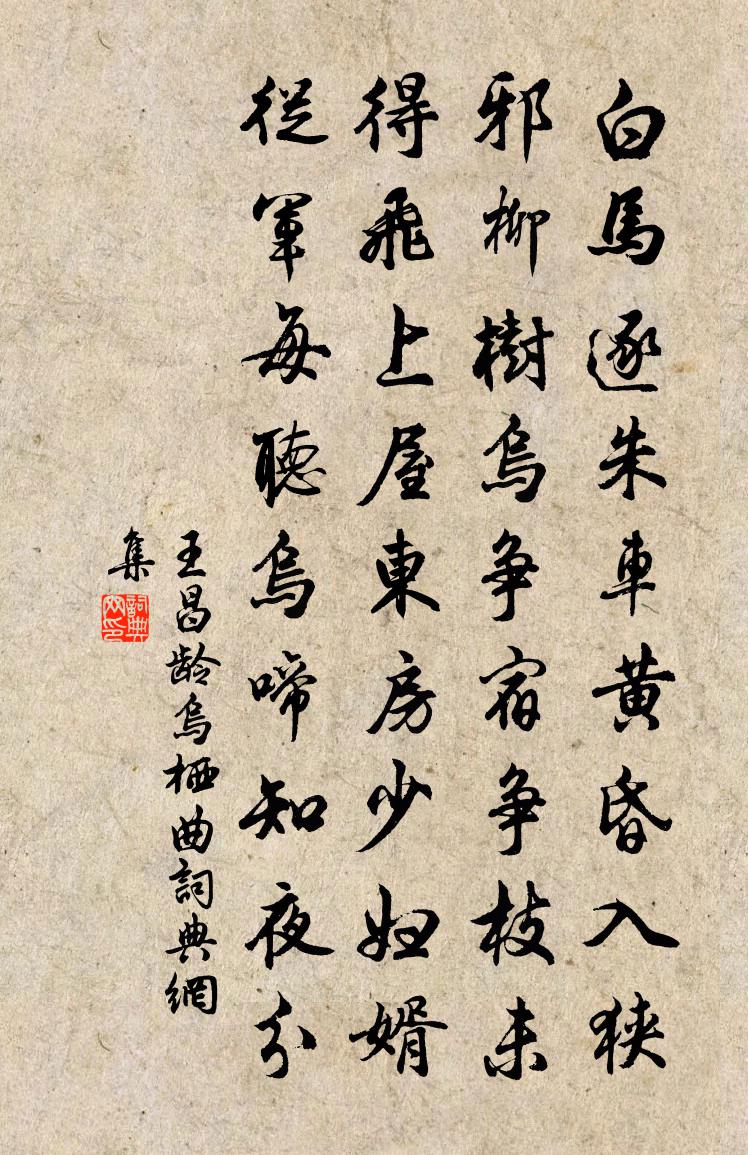 白馬逐朱車黃昏入狹
邪柳樹烏争宿争枝未
得飛上屋東房少婦婿
從軍每聽烏啼知夜分
王昌齡烏栖曲詞典網
集
詞典
网印